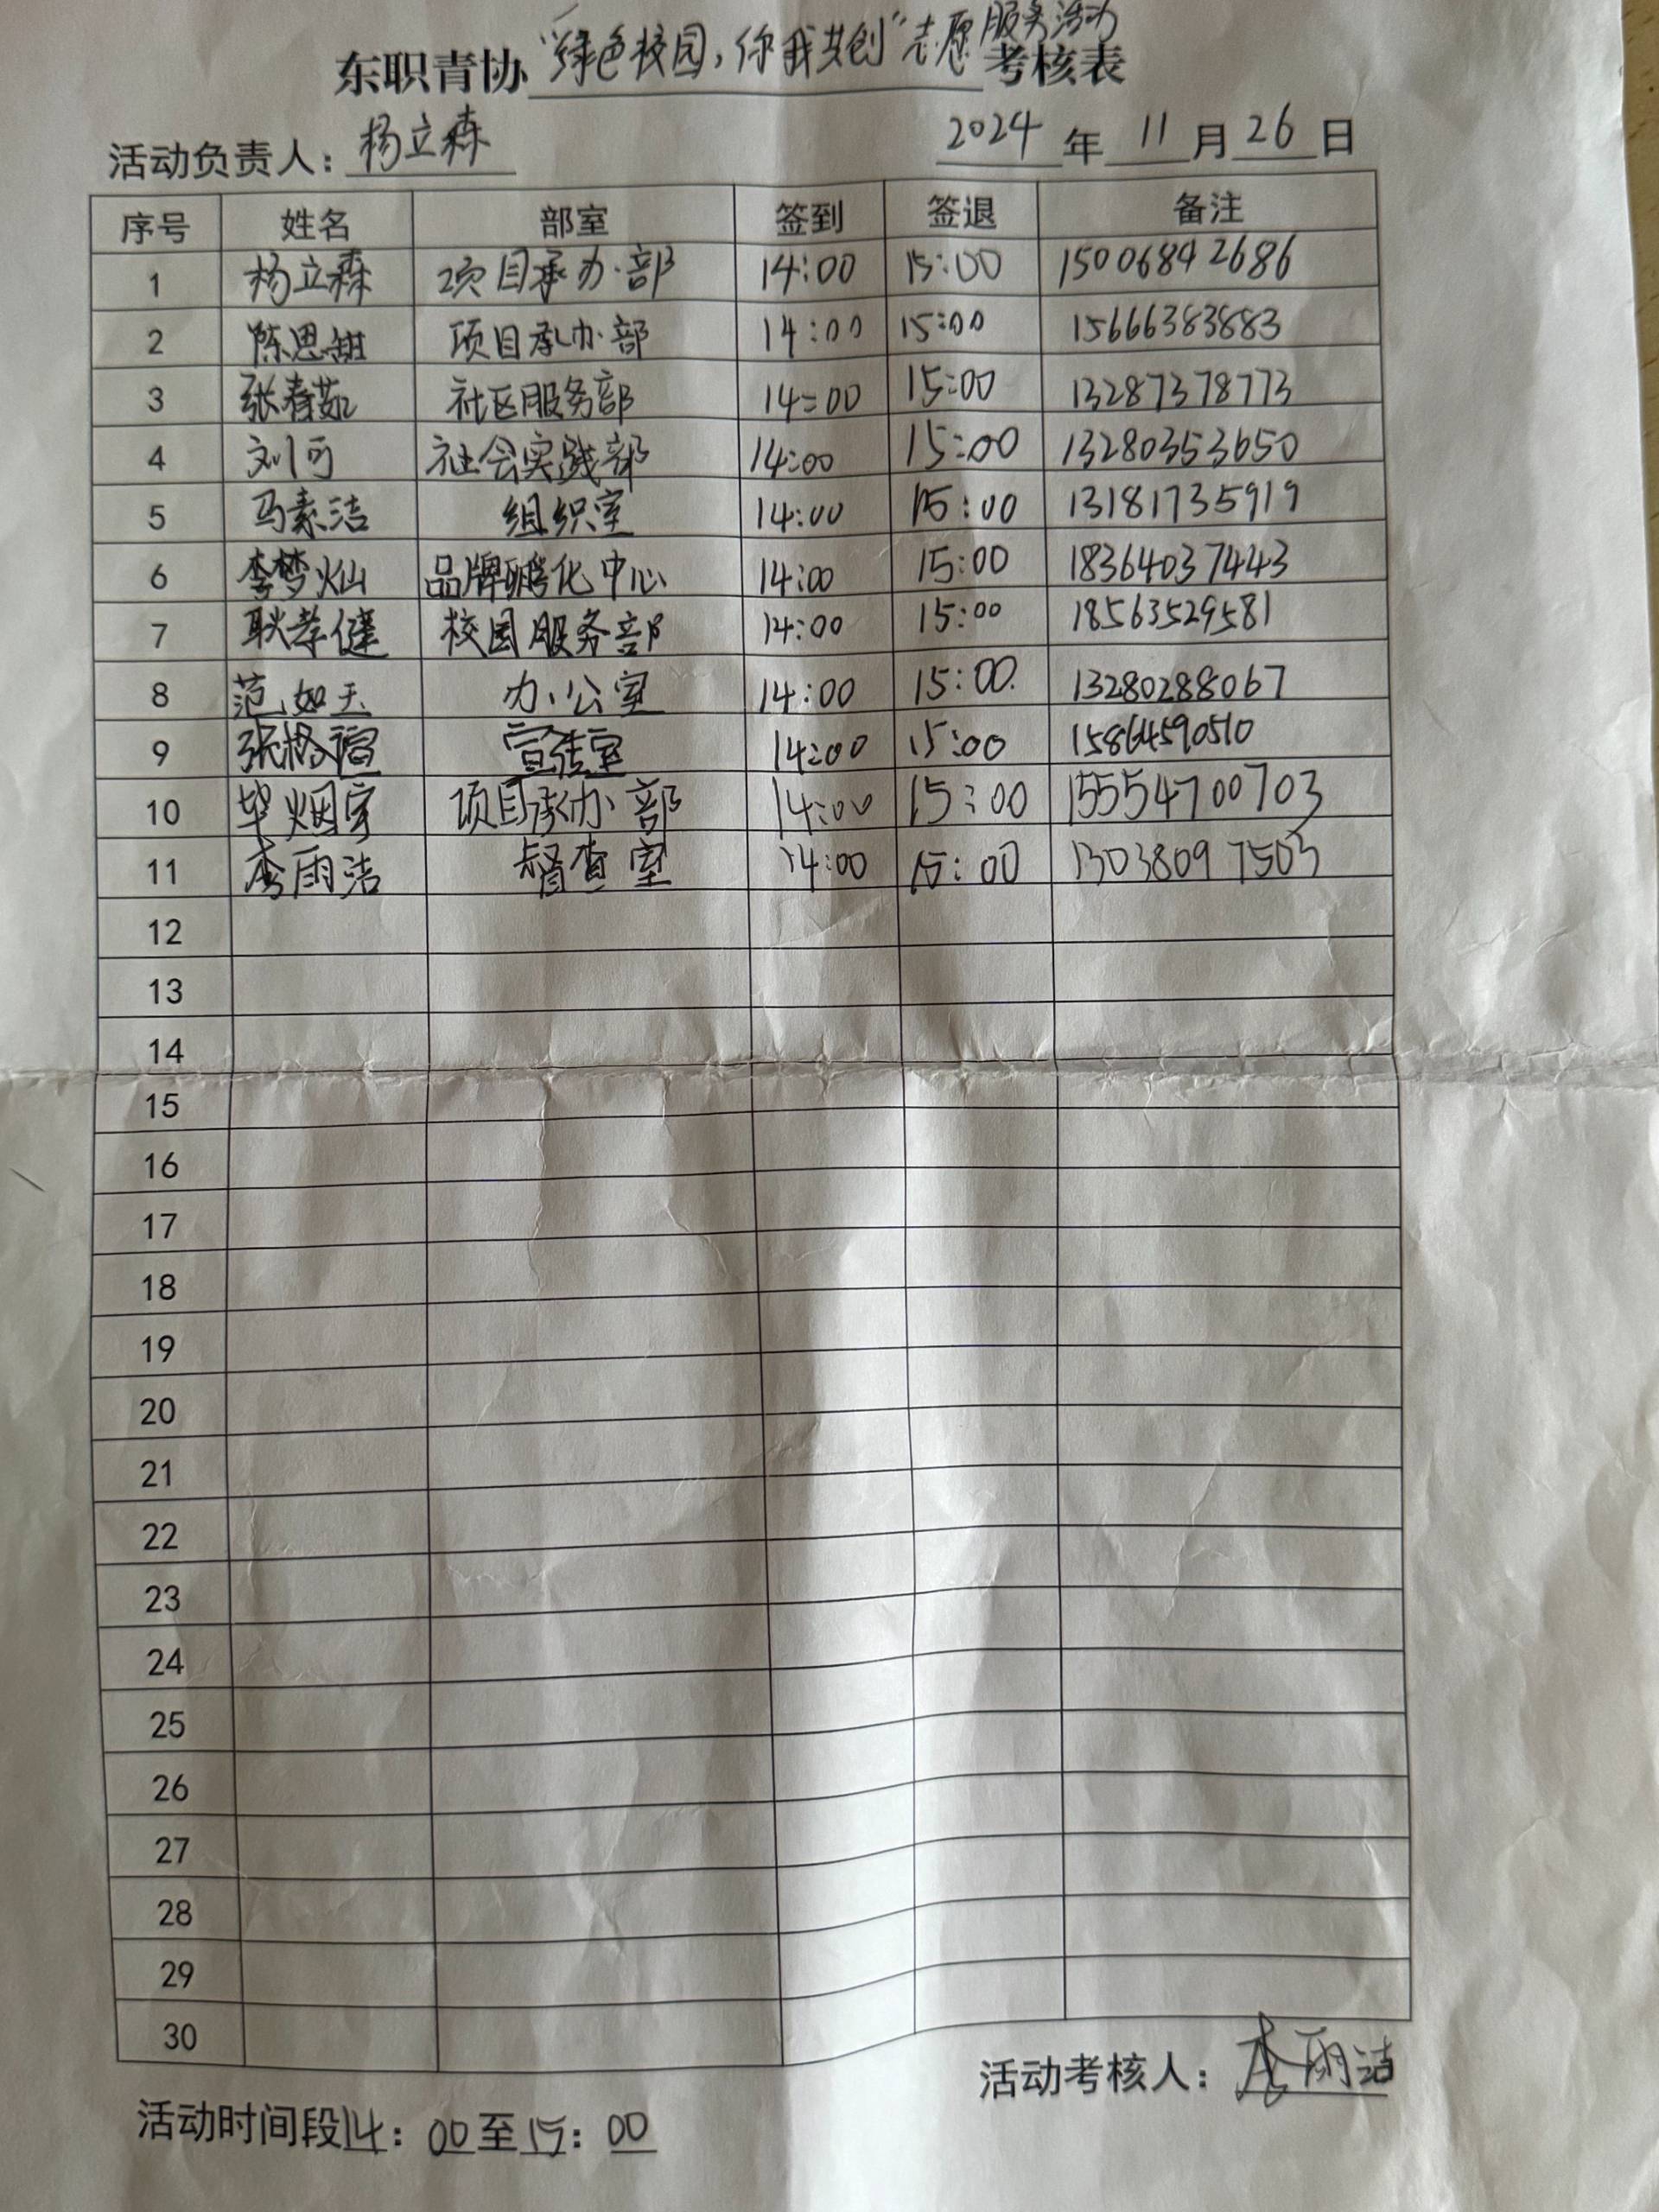 东职青协“绿色校园,你我共创”志愿服务活动考核表
活动负责人: 杨立森 2024 年 11 月 26 日
序号 姓名 部室 签到 签退 备注
1 杨立森 项目承办部 14:00 15:00 15006842686
2 陈思甜 项目承办部 14:00 15:00 15666383883
3 张春茹 社区服务部 14:00 15:00 13287378773
4 刘可 社会实践部 14:00 15:00 13280353650
5 马素洁 组织室 14:00 15:00 13181735919
6 李梦灿 品牌孵化中心 14:00 15:00 18364037443
7 耿孝健 校园服务部 14:00 15:00 18563529581
8 范如天 办公室 14:00 15:00 13280288067
9 宣传室 14:00 15:00 15864590510
10 毕烟宇 项目承办部 14:00 15:00 15554700703
11 李雨洁 督查室 14:00 15:00 13038097503
12
13
14
15
16
17
18
19
20
21
22
23
24
25
26
27
28
29
30
活动考核人: 李雨洁
活动时间段14: 00至15: 00